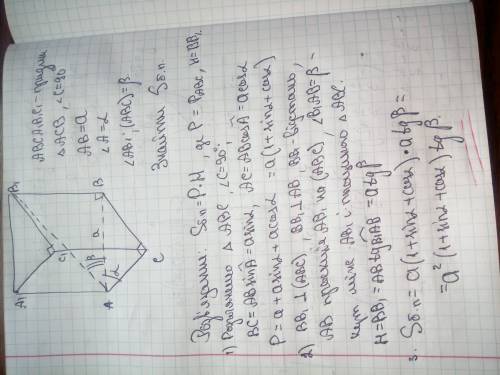 ABCA₁B₁C₁ – призма
△ ACB, ∠C=90
AB=a
∠A=α
∠AB₁; (ABC)=β
Знайти Sб.п.
A₁
B₁
C₁
A
B
C
a
β
α
Розв'язання: Sб.п=P·H, де P = P ABC, H=BB₁
1) Розглянемо △ ABC, ∠C=90°,
BC=AB sinA=a sinα, AC=AB cosA=a cosα
P=a+a sinα+a cosα =a(1+sinα+cosα)
2) BB₁⊥(ABC), BB₁⊥AB, BB₁-відстань,
AB проекція AB₁ на (ABC), ∠B₁AB=β-
кут між AB₁ і площиною △ABC.
H=BB₁=AB tg B₁AB=a tgβ
3. Sб.п=a(1+sinα+cosα)·a tgβ=
=a²(1+sinα+cosα)tgβ